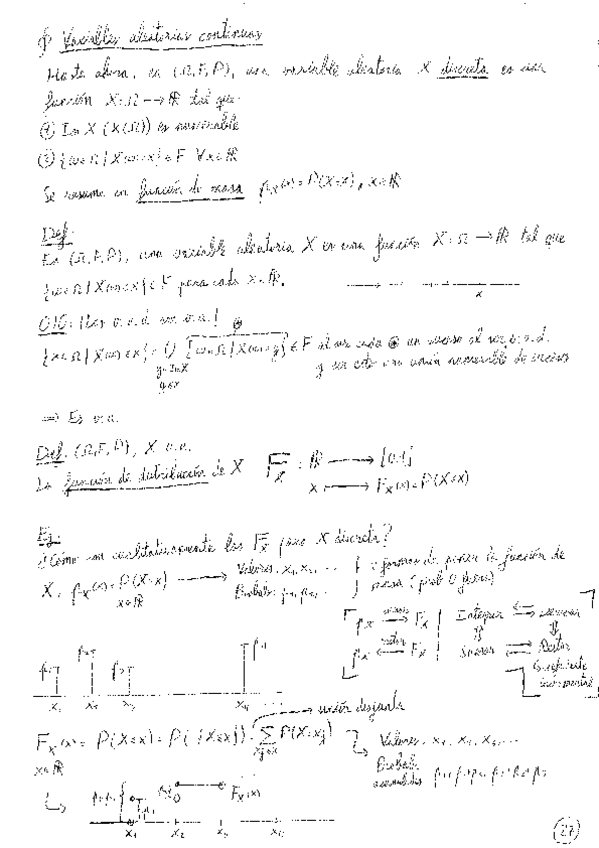 Variables aleatorias continuas
Hasta ahora, en (Ω,F,P), una variable aleatoria X discreta es una
función X:Ω → ℝ tal que:
① Im X (X(Ω)) es numerable
② {ω∈Ω | X(ω)=x}∈F ∀x∈ℝ
Se resume en función de masa p_X(x)=P(X=x), x∈ℝ
Def:
En (Ω,F,P), una variable aleatoria X es una función X:Ω → ℝ tal que
{ω∈Ω | X(ω)≤x}∈F para cada x∈ℝ.
x
OJO: ¡Las v.a.d. son v.a.!
{ω∈Ω | X(ω)≤x} = ∪ {ω∈Ω | X(ω)=y}∈F al ser cada un suceso al ser v.a.d.
y∈Im X
y≤x
y ser esto una unión numerable de sucesos
⇒ Es v.a.
Def. (Ω,F,P), X v.a.
La función de distribución de X F_X : ℝ → [0,1]
x → F_X(x)=P(X≤x)
Ej:
¿Cómo son cualitativamente las F_X para X discreta?
X, p_X(x)=P(X=x) → Valores: x₁, x₂, ...
x∈ℝ Probab: p₁, p₂, ...
formas de poner la función de
masa (prob 0 fuera)
p_X → F_X Integrar
p_X ← F_X Sumar Restar
Cociente
incremental
p₁ p₂ p₃ p₄
x₁ x₂ x₃ x₄ ...
unión disjunta
F_X(x) = P(X≤x) = P({X≤x}) = Σ P(X=x_j)
x∈ℝ x_j≤x
Valores: x₁, x₂, x₃, ...
Probab.
acumuladas p₁, p₁+p₂, p₁+p₂+p₃
p₁+p₂ F_X(x)
x₁ x₂ x₃ x₄
27